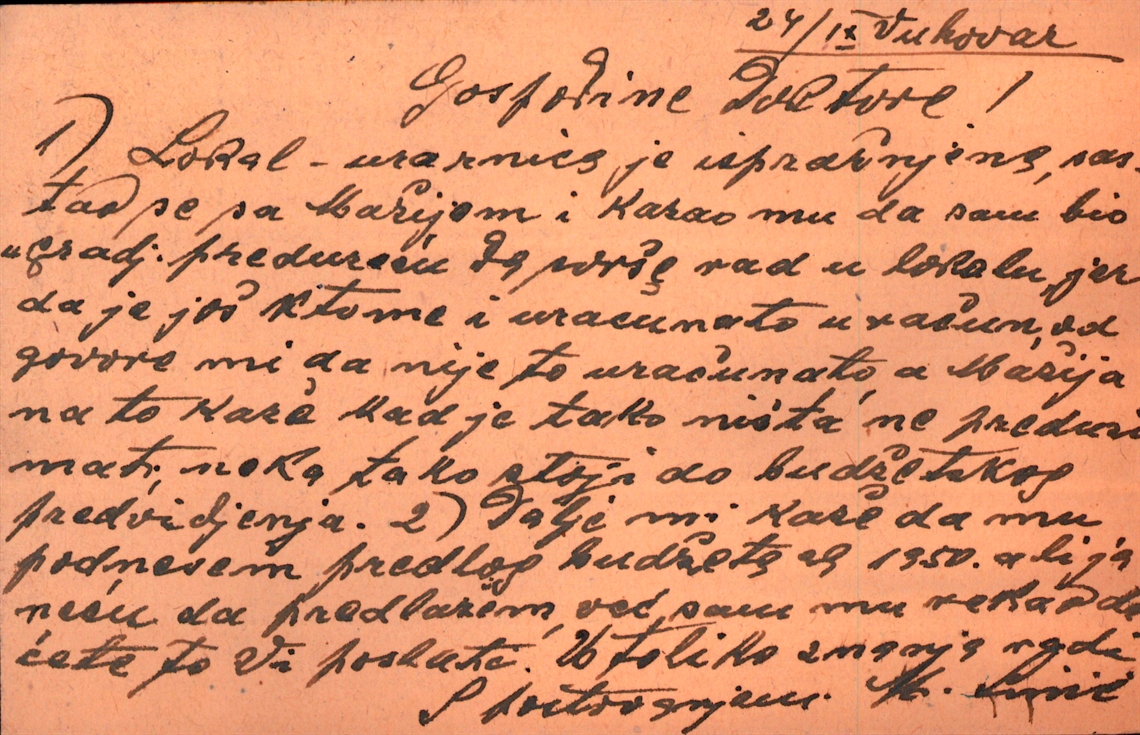 24/IX Vukovar
Gospodine Doktore!
1) Lokal - urarnica je ispražnjena, sas-
tao se sa Mažijom i kazao mu da sam bio
u gradj. preduzeću da svrše rad u lokalu, jer
da je još k tome i uracunato u račun, od
govore mi da nije to uračunato, a Mažija
na to kaže kad je tako ništa ne preduzi
mati, neka tako stoji do budžetskog
predvidjenja. 2) Dalje mi kaže da mu
podnesem predlog budžeta za 1950. ali ja
neću da predlažem, već sam mu rekao da
ćete to Vi poslati. U toliko znanja radi
S poštovanjem. M.